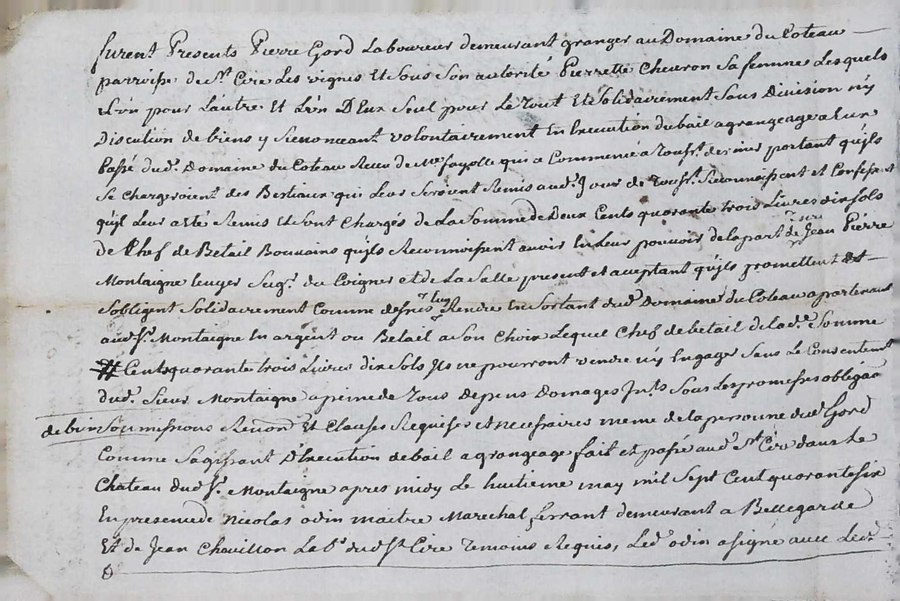 furent Presents Pierre Gord Laboureur demeurant granger au Domaine du Coteau
parroisse de St. Cire Les vignes Et sous son autorité Pierrette Cheuron sa femme Lesquels
L'un pour L'autre Et L'un D'Eux seul pour Le Tout Et solidairement sans Division ny
Discution de biens y Renonceant volontairement En Execution du bail a grangeage a Eux
passé dud. Domaine du Coteau Receu de Me fayolle qui a Commencé a Touss.t dernier portant qu'ils
se chargeroient des Bestiaux qui Leur seroient Remis aud. Jour de Touss.t Reconnoissent et Confessent
qu'il Leur a êté Remis Et sont Chargés de La somme de Deux Cents quarante trois Livres dix sols
de Chef de Betail Bouvains qu'ils Reconnoissent avoir En Leur pouvoir de la part de sieur Jean Pierre
Montaigne Seig.r du Poignet et de La Salle present et aceptant qu'ils promettent Et
s'obligent solidairement Comme dessus Rendre En sortant dud. Domaine du Coteau apartenant
aud. Sr. Montaigne En argent ou Betail a son Choix Lequel Chef de betail de lad.e somme
Cents quarante trois Livres dix sols Ils ne pourront vendre ny Engager sans Le Consentem.t
dud. Sieur Montaigne a peine de Tous Depens Domages Int.s sous Les promesses obligaõn
de bien soumissions Renonõn Et Clauses Requises et necessaires meme de la personne dud. Gord
Comme s'agissant D'Execution de bail a grangeage fait et passé aud. St. Cire dans Le
Chateau dud. Sr. Montaigne apres midy Le huitieme may mil sept Cent quarante six
En presence de Nicolas odin maitre Marechal ferrant demeurant a Bellegarde
Et de Jean Chovillon Lab.r dud. St. Cire Temoins Requis, Led. odin a signé avec Led.